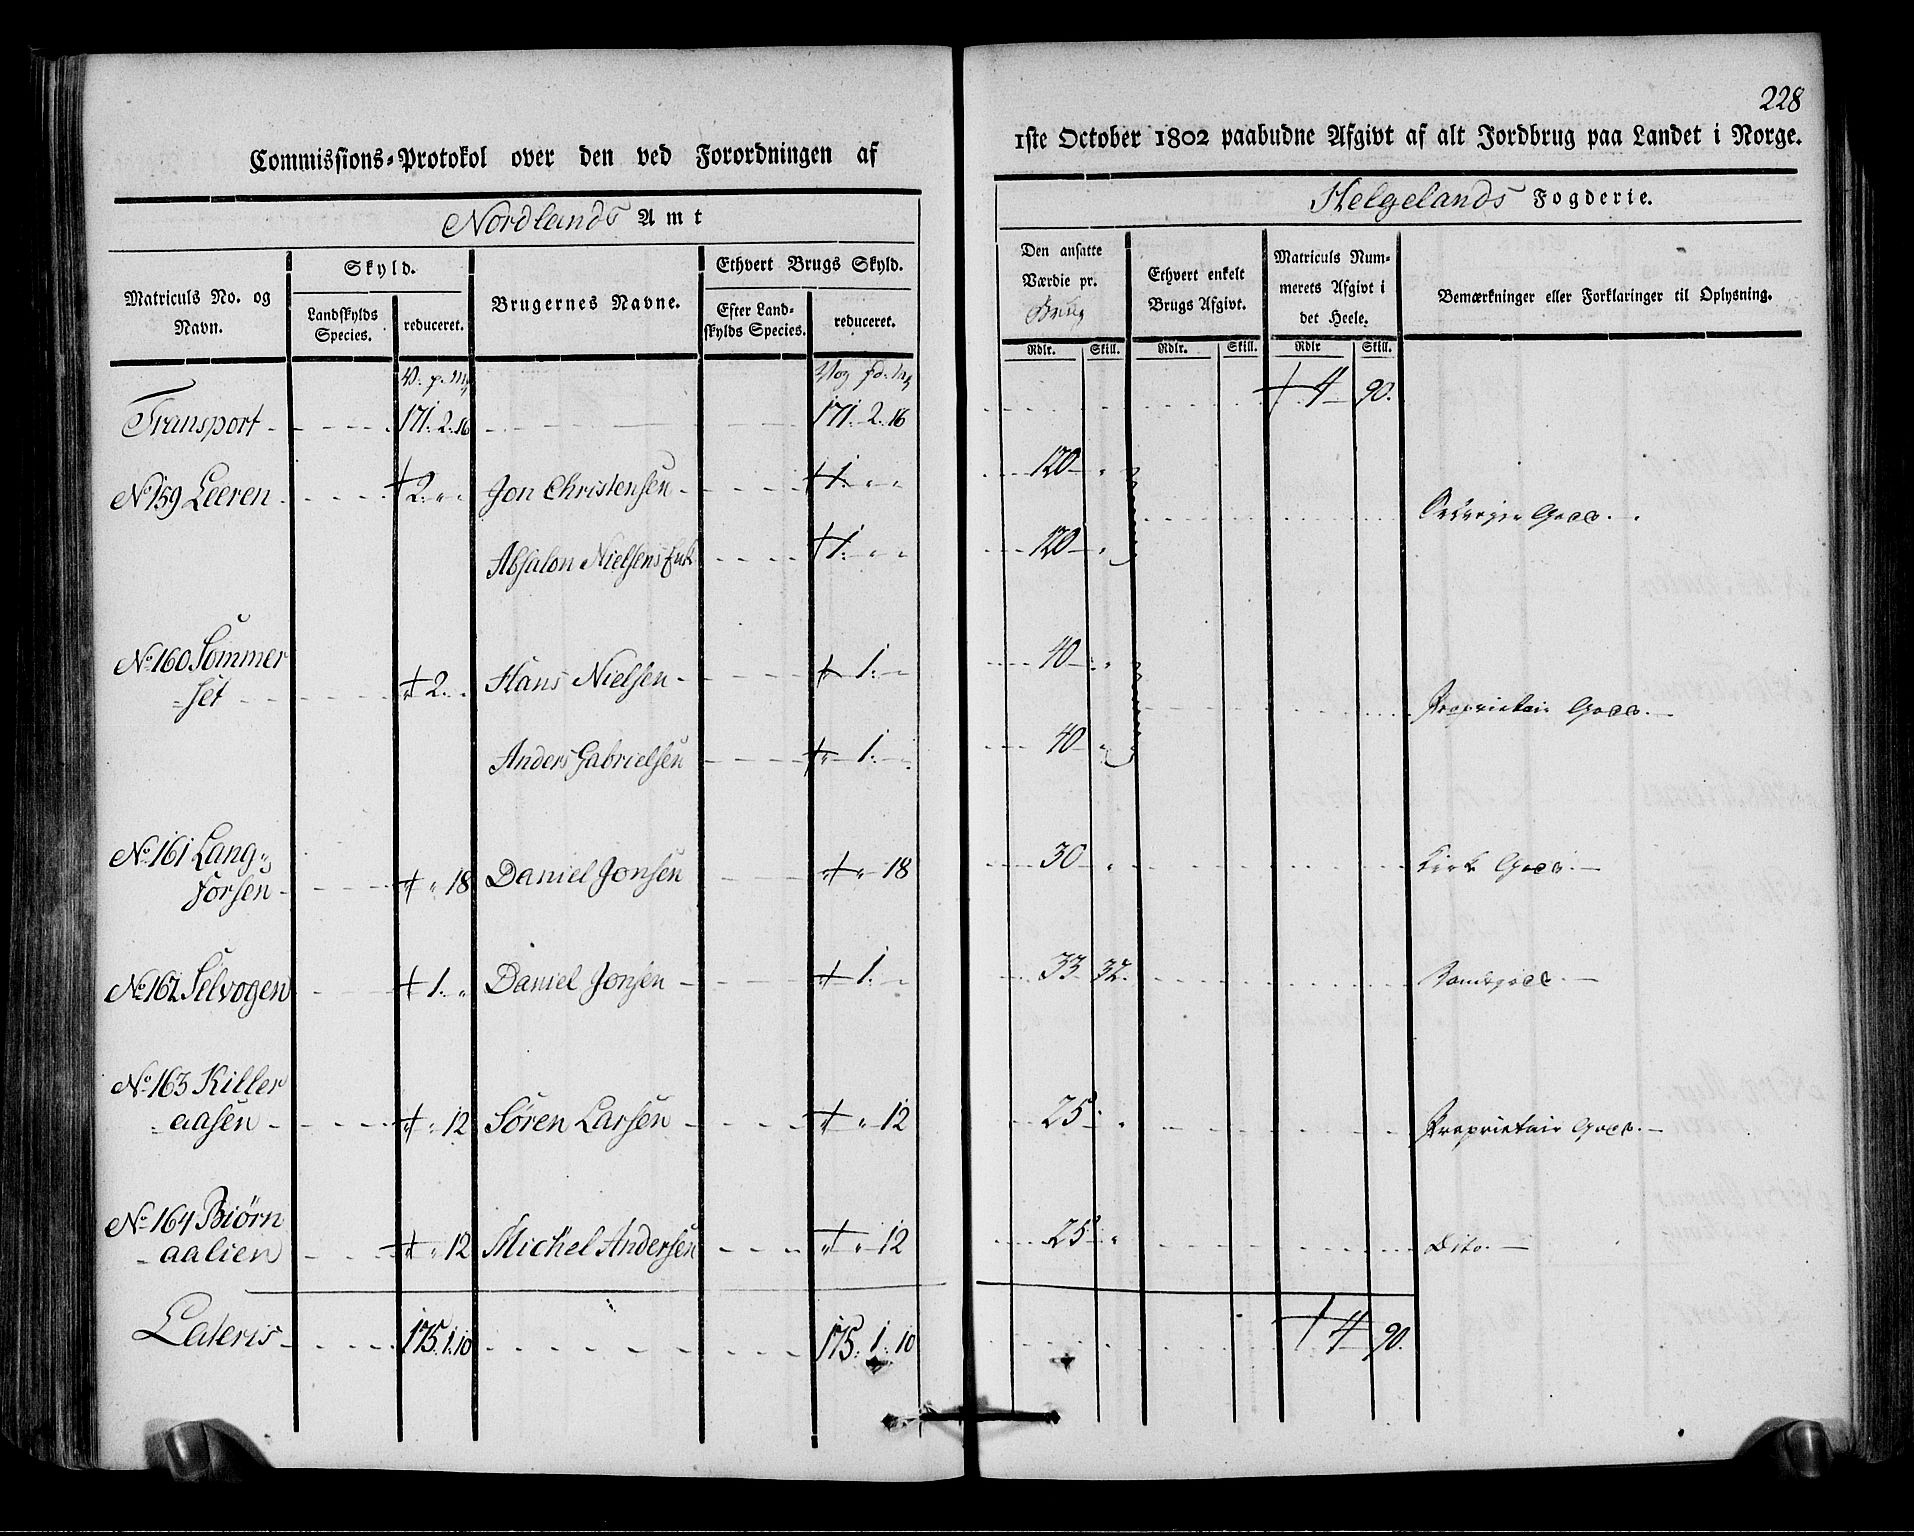 Commissions-Protokol over den ved Forordningen af
Nordlands Amt
Matriculs No. og Navn.
Skyld.
Landskylds Species.
reduceret.
Brugernes Navne.
Ethvert Brugs Skyld.
Efter Landskylds Species.
reduceret.
V. p. Mk
Vog pd. Mk
Transport 171. 2. 16 171. 2. 16
No 159 Leeren 2. " " Jon Christensen 1. " "
Absalon Nielsens Enke 1. " "
No 160 Sommer
=set " 2. " Hans Nielsen " 1. "
Anders Gabrielsen " 1. "
No 161 Lang=
forsen " " 18 Daniel Jonsen " " 18
No 162 Selvogen " 1. " Daniel Jonsen " 1. "
No 163 Killer
=aasen " " 12 Sören Larsen " " 12
No 164 Biørn
=aalien " " 12 Michel Andersen " " 12
Lateris 175. 1. 10 175. 1. 10
228
1ste October 1802 paabudne Afgivt af alt Jordbrug paa Landet i Norge.
Helgelands Fogderie.
Den ansatte Værdie pr. Brug
Ethvert enkelt Brugs Afgivt.
Matriculs Nummerets Afgivt i det Heele.
Bemærkninger eller Forklaringer til Oplysning.
Rdlr. Skill. Rdlr. Skill. Rdlr Skill.
4 90.
120 "
Gods.
120 "
40 "
Proprietair Gods.
40 "
30 " Kirke Gods.
33 32. Bondegods.
25 " Proprietair Gods.
25 " Dito.
4 90.